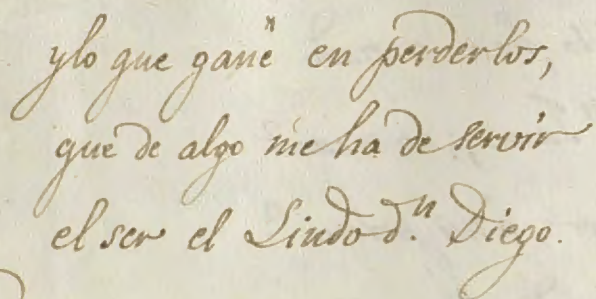 ylo que gané en perderlos,
que de algo me ha de servir
el ser el Lindo d.n Diego.